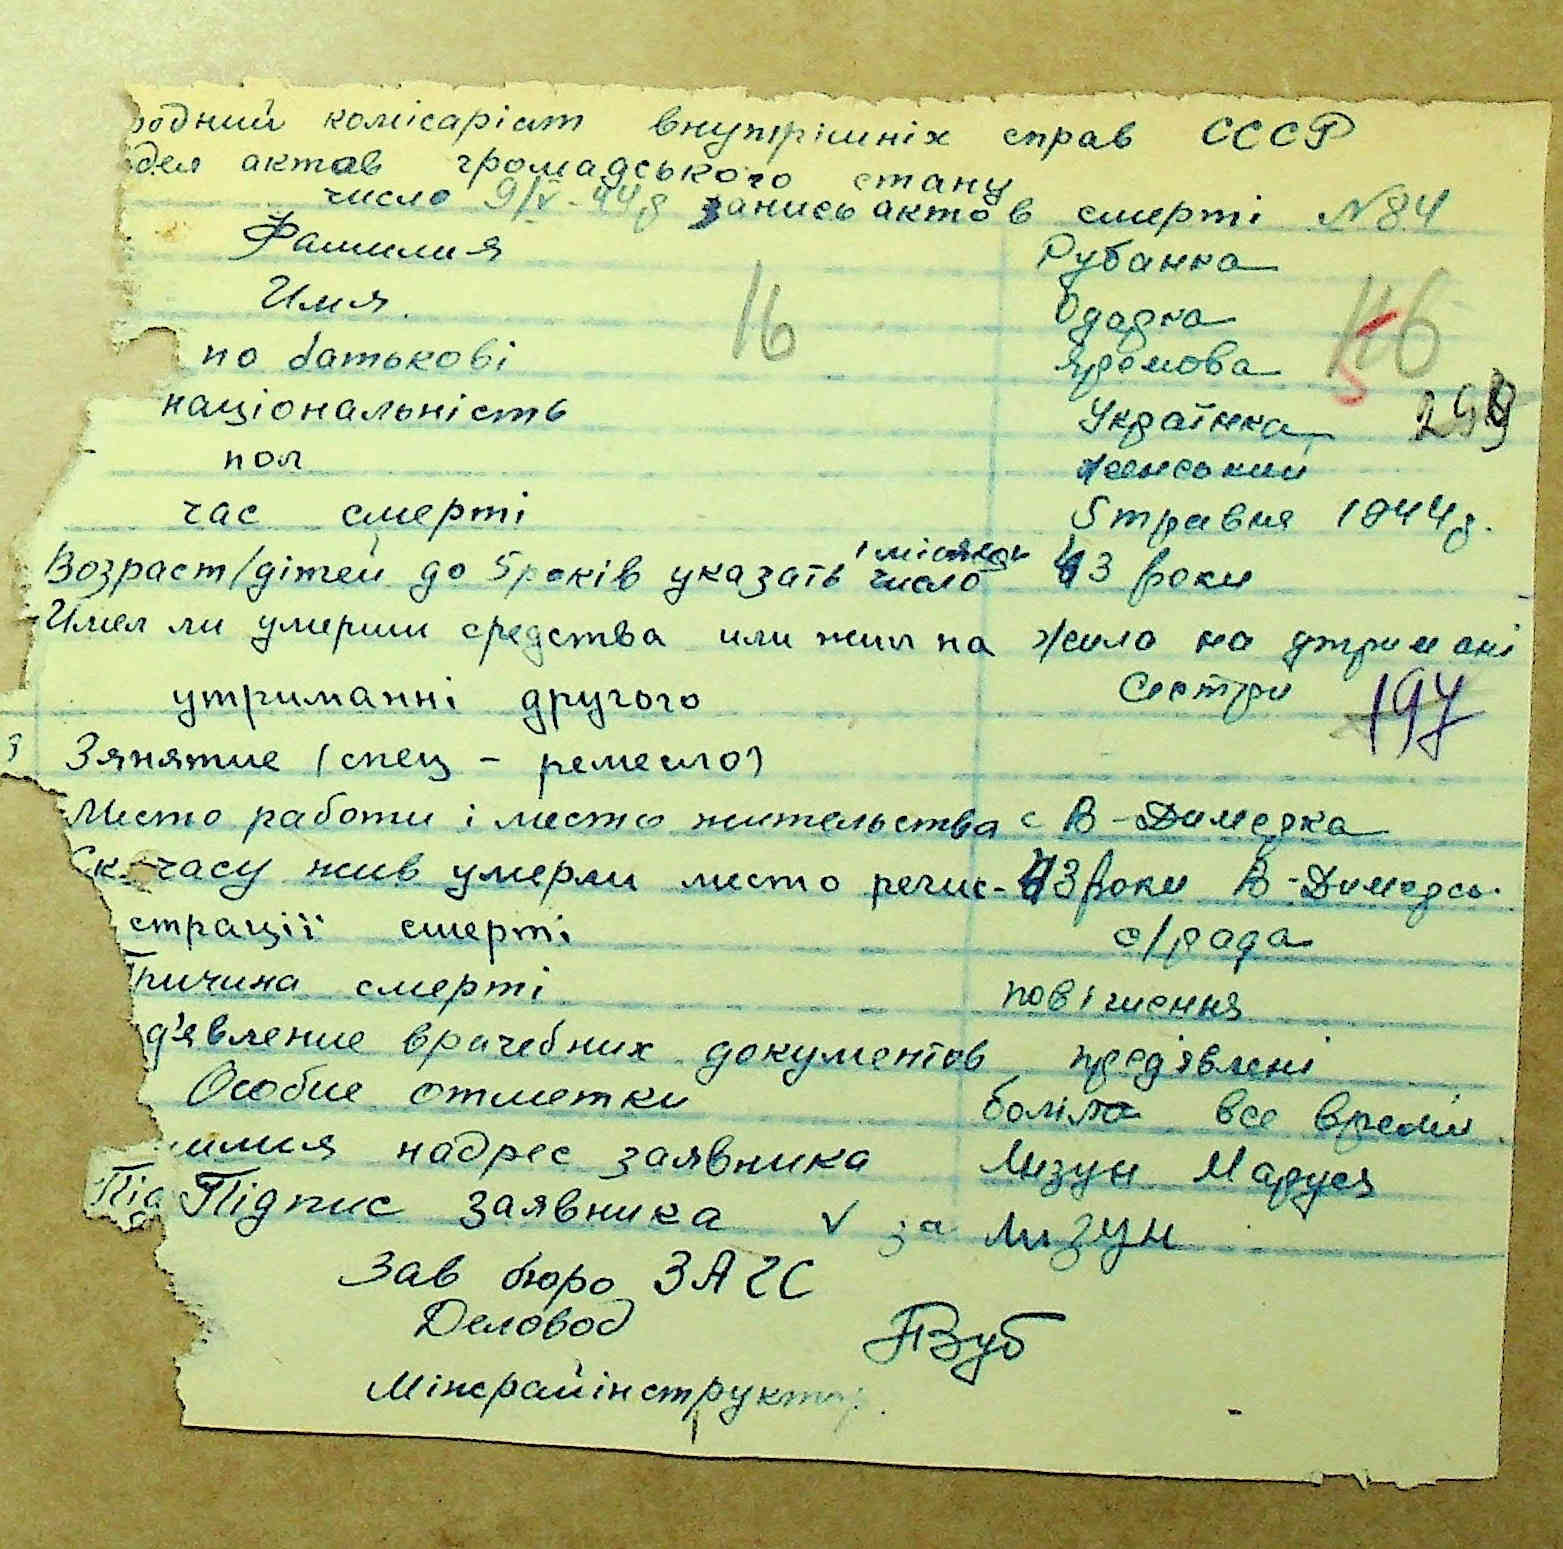 родний комісаріат внутрішніх справ СССР
одел актов громадського стану
число 9/V-44р запись актов смерті №84
Фамилия Рубанка
Имя Одарка
16 146
по батькові Яремова
національність Українка
пол женський
час смерті 5 травня 1944р.
і місяць
Возраст/дітей до 5 років указать число 43 роки
Имел ли умерши средства или жил на жила на утримані
утриманні другого Сестри 197
Зянятие (спец - ремесло)
Место работи і место жительства с В-Димерка
Ск часу жив умерли место регис- 43 роки В-Димерсь.
страції смерті с/рада
Причина смерті повішення
д'явление врачебних документов пред'явлені
Особие отметки боліла все время.
милия надрес заявника Лизун Маруся
Під Підпис заявника V за Лизун
Зав бюро ЗАГС
Деловод ПЗуб
Міжрайінструктор.